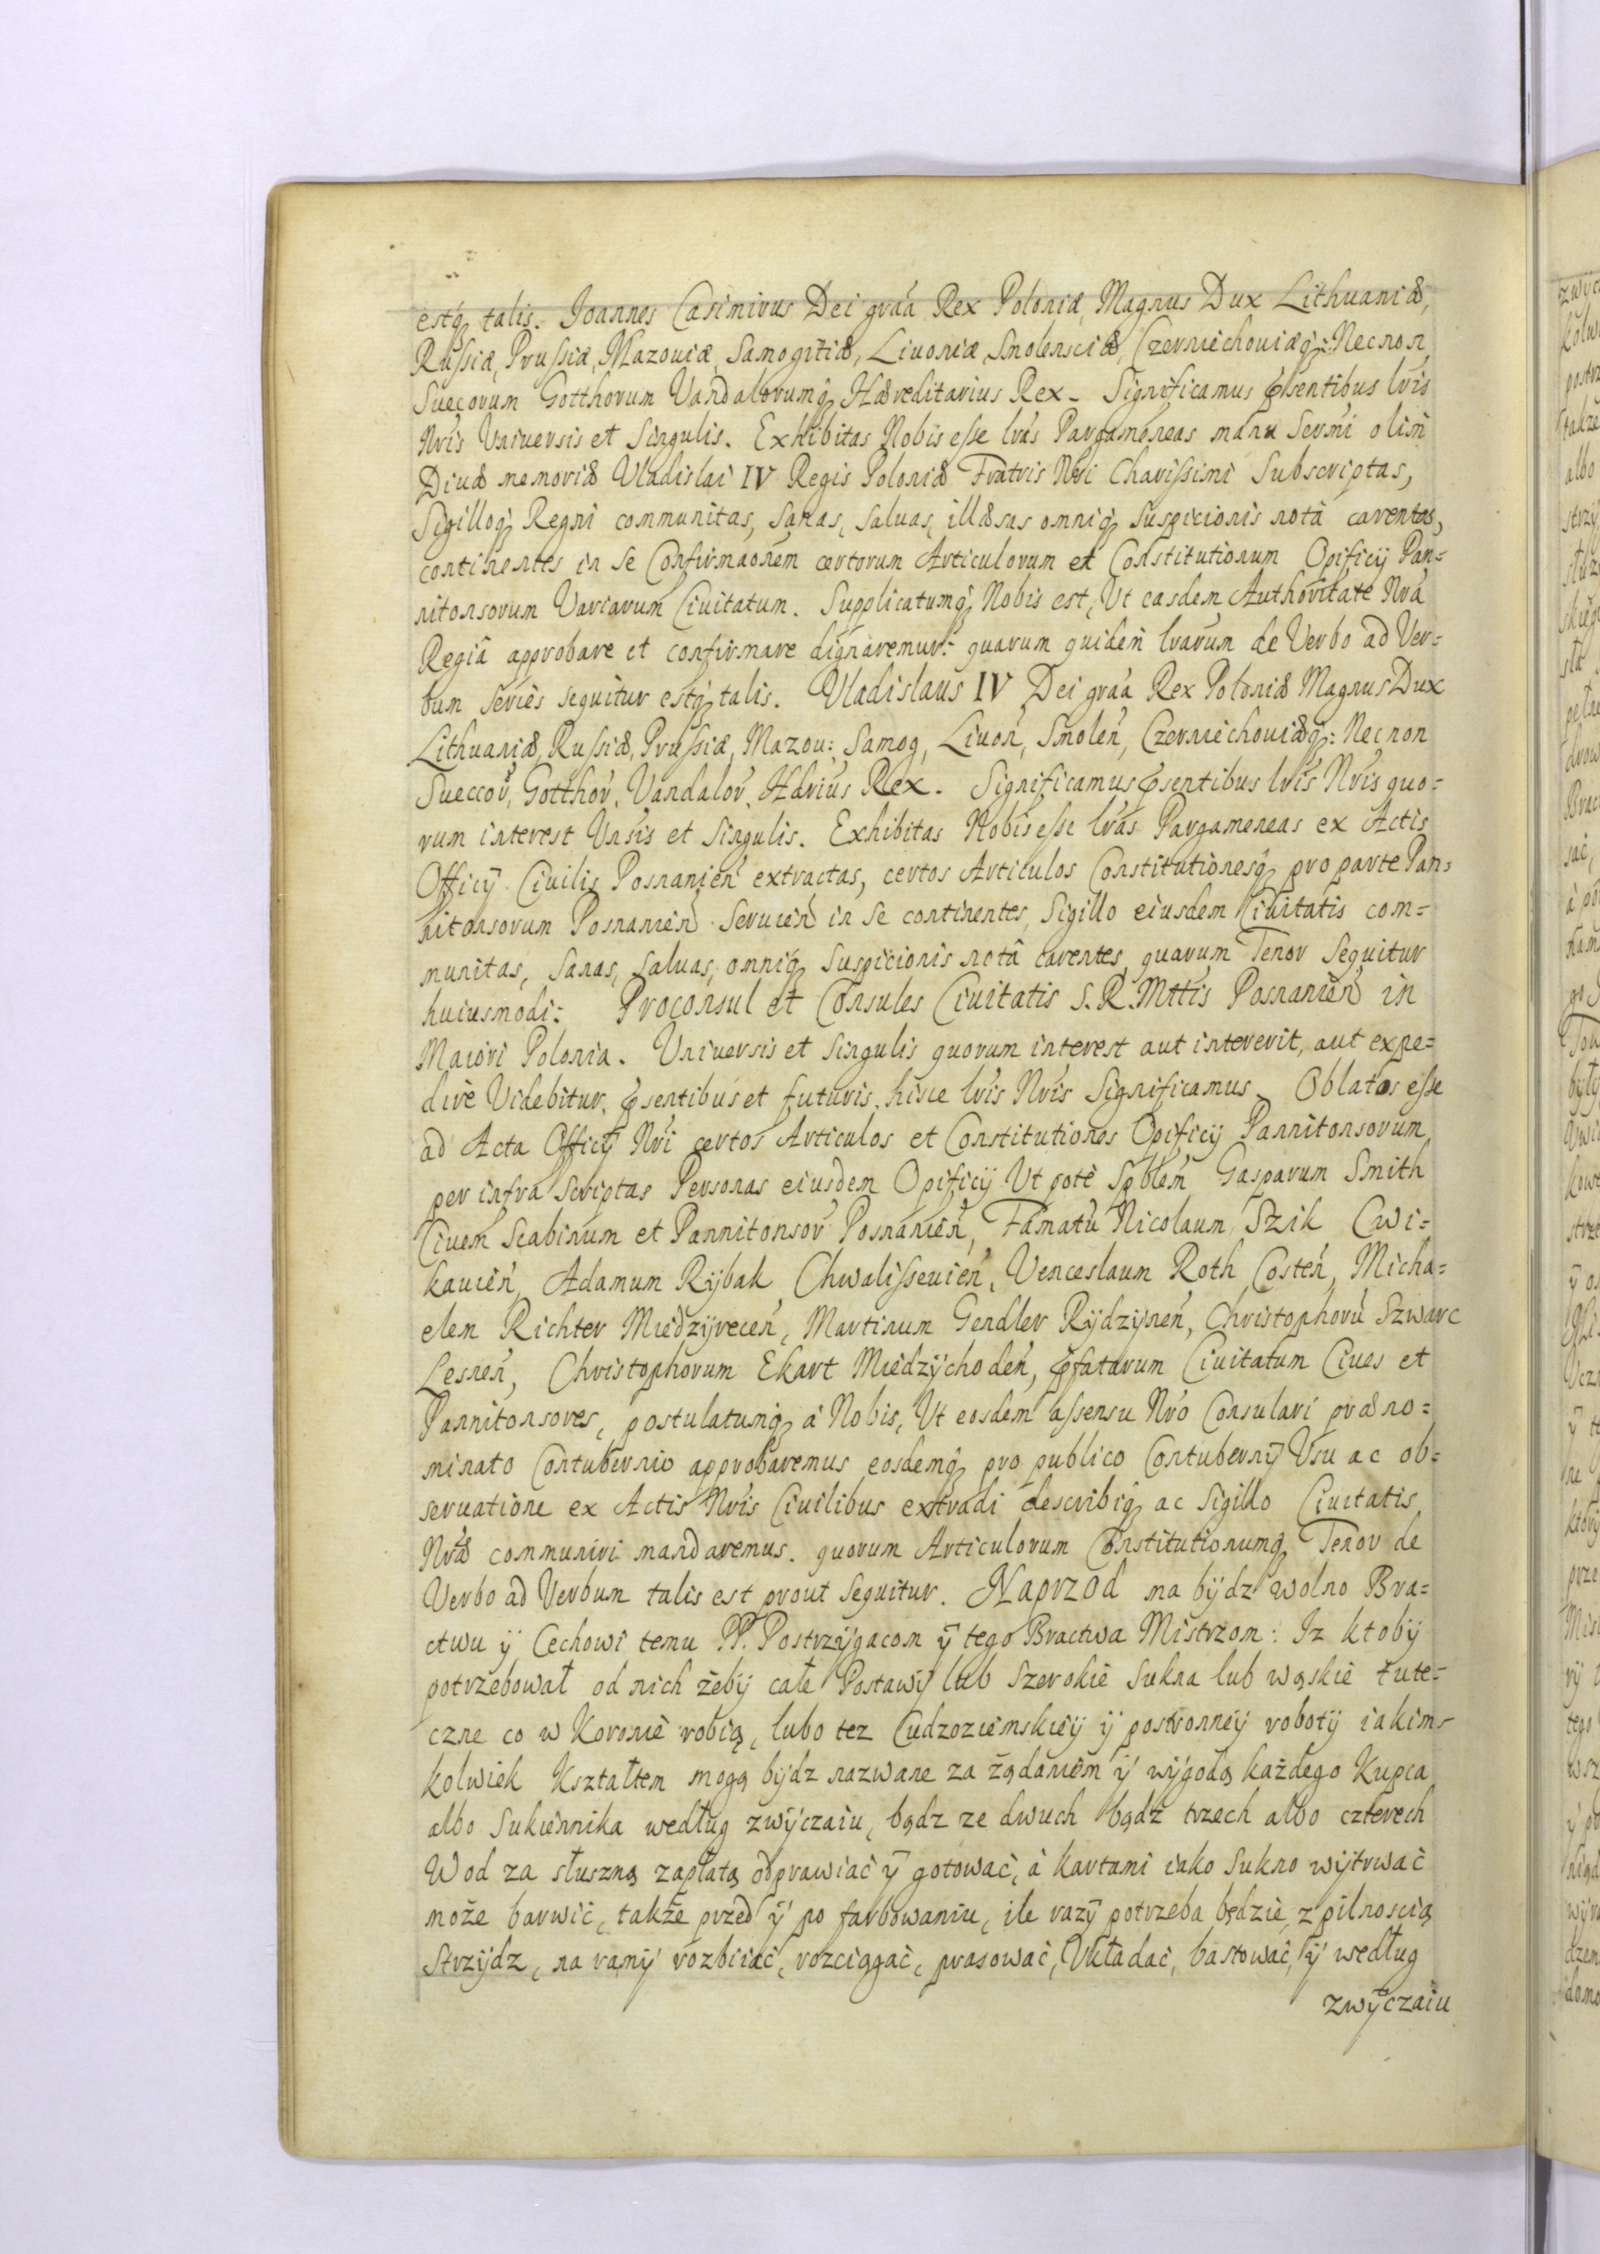 estq́ talis. Joannes Casimirus Dei grãa Rex Poloniæ, Magnus Dux Lithuaniæ,
Russiæ, Prussiæ, Mazouiæ, Samogitiæ, Liuoniæ, Smolensciæ, Czerniechouiæq́: Necnon
Suecorum Gotthorum Vandalorumq́ Hæreditarius Rex. Significamus p̄sentibus lrīs
Nrīs Vniuersis et Singulis. Exhibitas Nobis esse lrās Pargameneas manu Sermī olim
Diuæ memoriæ Vladislai IV Regis Poloniæ Fratris Nrī Charissimi Subscriptas,
Sigilloq́ Regni communitas, Sanas, Saluas, illæsas omniq́ Suspicionis notâ carentes,
continentes in se Confirmaōnem certorum Articulorum et Constitutionum Opificij Pan=
nitonsorum Variarum Ciuitatum. Supplicatumq́ Nobis est, Vt easdem Authoritate Nrā
Regiâ approbare et confirmare dignaremur: quarum quidem lrarum de Verbo ad Ver=
bum series sequitur estq́ talis. Vladislaus IV Dei grãa Rex Poloniæ Magnus Dux
Lithuaniæ, Russiæ, Prussiæ, Mazou: Samog, Liuoń, Smoleń, Czerniechouiæq́: Necnon
Sueccoŕ, Gotthoŕ, Vandaloŕ, Hdrius Rex. Significamus p̄sentibus lrīs Nrīs quo=
rum interest Vnsis et Singulis. Exhibitas Nobis esse lrās Pargameneas ex Actis
Officij Ciuilis Posnanień extractas, certos Articulos Constitutionesq́ pro parte Pan=
nitonsorum Posnanień Seruień in se continentes, Sigillo eiusdem Ciuitatis com=
munitas, Sanas, Saluas, omniq́ Suspicionis notâ carentes, quarum Tenor Sequitur
huiusmodi: Proconsul et Consules Ciuitatis S. R. Mttis Posnanień in
Maiori Polonia. Vniuersis et Singulis quorum interest aut intererit, aut expe=
dire Videbitur, p̄sentibus et futuris, hisce lrīs Nrīs Significamus. Oblatos esse
ad Acta Officij Nrī certos Articulos et Constitutiones Opificij Pannitonsorum
per infra Scriptas Personas eiusdem Opificij Vt pote Spblem Gasparum Smith
Ciuem Scabinum et Pannitonsoŕ Posnanień, Famatū Nicolaum Szik Cwi=
kauień, Adamum Rÿbak Chwalisseuień, Venceslaum Roth Costeń, Micha=
elem Richter Miedzÿreceń, Martinum Gendler Rÿdzÿneń, Christophorū Szwarc
Lesneń, Christophorum Ekart Miedzÿchodeń, p̄fatarum Ciuitatum Ciues et
Pannitonsores, postulatumq́ à Nobis, Vt eosdem assensu Nrō Consulari præno=
minato Contubernio approbaremus eosdemq́ pro publico Contubernij Vsu ac ob=
seruatione ex Actis Nrīs Ciuilibus extradi describiq́ ac Sigillo Ciuitatis
Nræ communiri mandaremus. quorum Articulorum Constitutionumq́ Tenor de
Verbo ad Verbum talis est prout Sequitur. Naprzod ma bÿdz wolno Bra=
ctwu ÿ Cechowi temu PP. Postrzÿgacom ÿ tego Bractwa Mistrzom: Iz ktobÿ
potrzebował od nich żebÿ całe Postawÿ lub Szerokie Sukna lub wąskie tute=
czne co w Koronie robią, lubo tez Cudzoziemskieÿ ÿ postronneÿ robotÿ iakim=
kolwiek Kształtem mogą bÿdz nazwane za żądaniem ÿ wÿgodą każdego Kupca
albo Sukiennika według zwÿczaiu, bądz ze dwuch bądz trzech albo czterech
Wod za słuszną zapłatą odprawiać ÿ gotować, à kartami iako Sukno wÿtrwać
może barwić, także przed ÿ po farbowaniu, ile razÿ potrzeba będzie, z pilnoscią
Strzÿdz, na ramÿ rozbiiać, rozciągać, prasować, Vkładać, bastować, ÿ według
zwÿczaiu